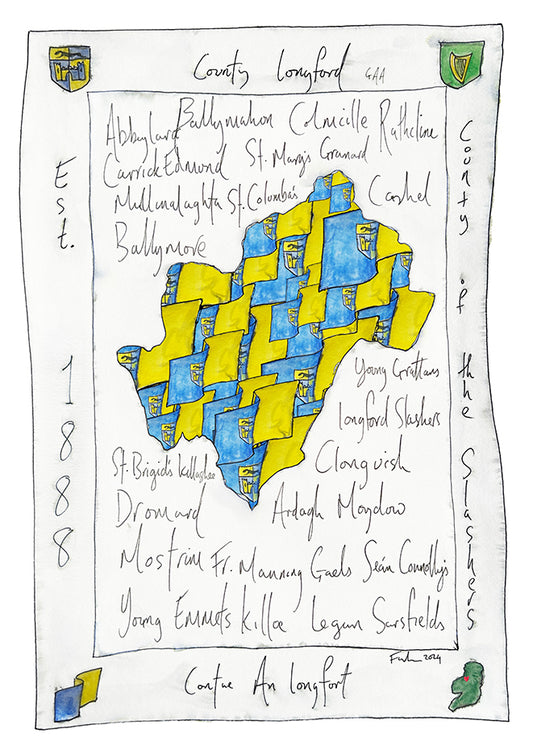 County Longford GAA
Est. 1888
County of the Slashers
Abbeylara Ballymahon Colmcille Rathcline
Carrick Edmond St. Mary's Granard
Mullinalaghta St. Columbas Cashel
Ballymore
Young Grattans
Longford Slashers
St. Brigids Killashee Clonguish
Dromard Ardagh Moydow
Mostrim Fr. Manning Gaels Seán Connolly's
Young Emmets Killoe Legan Sarsfields
2024
Contae An Longfort